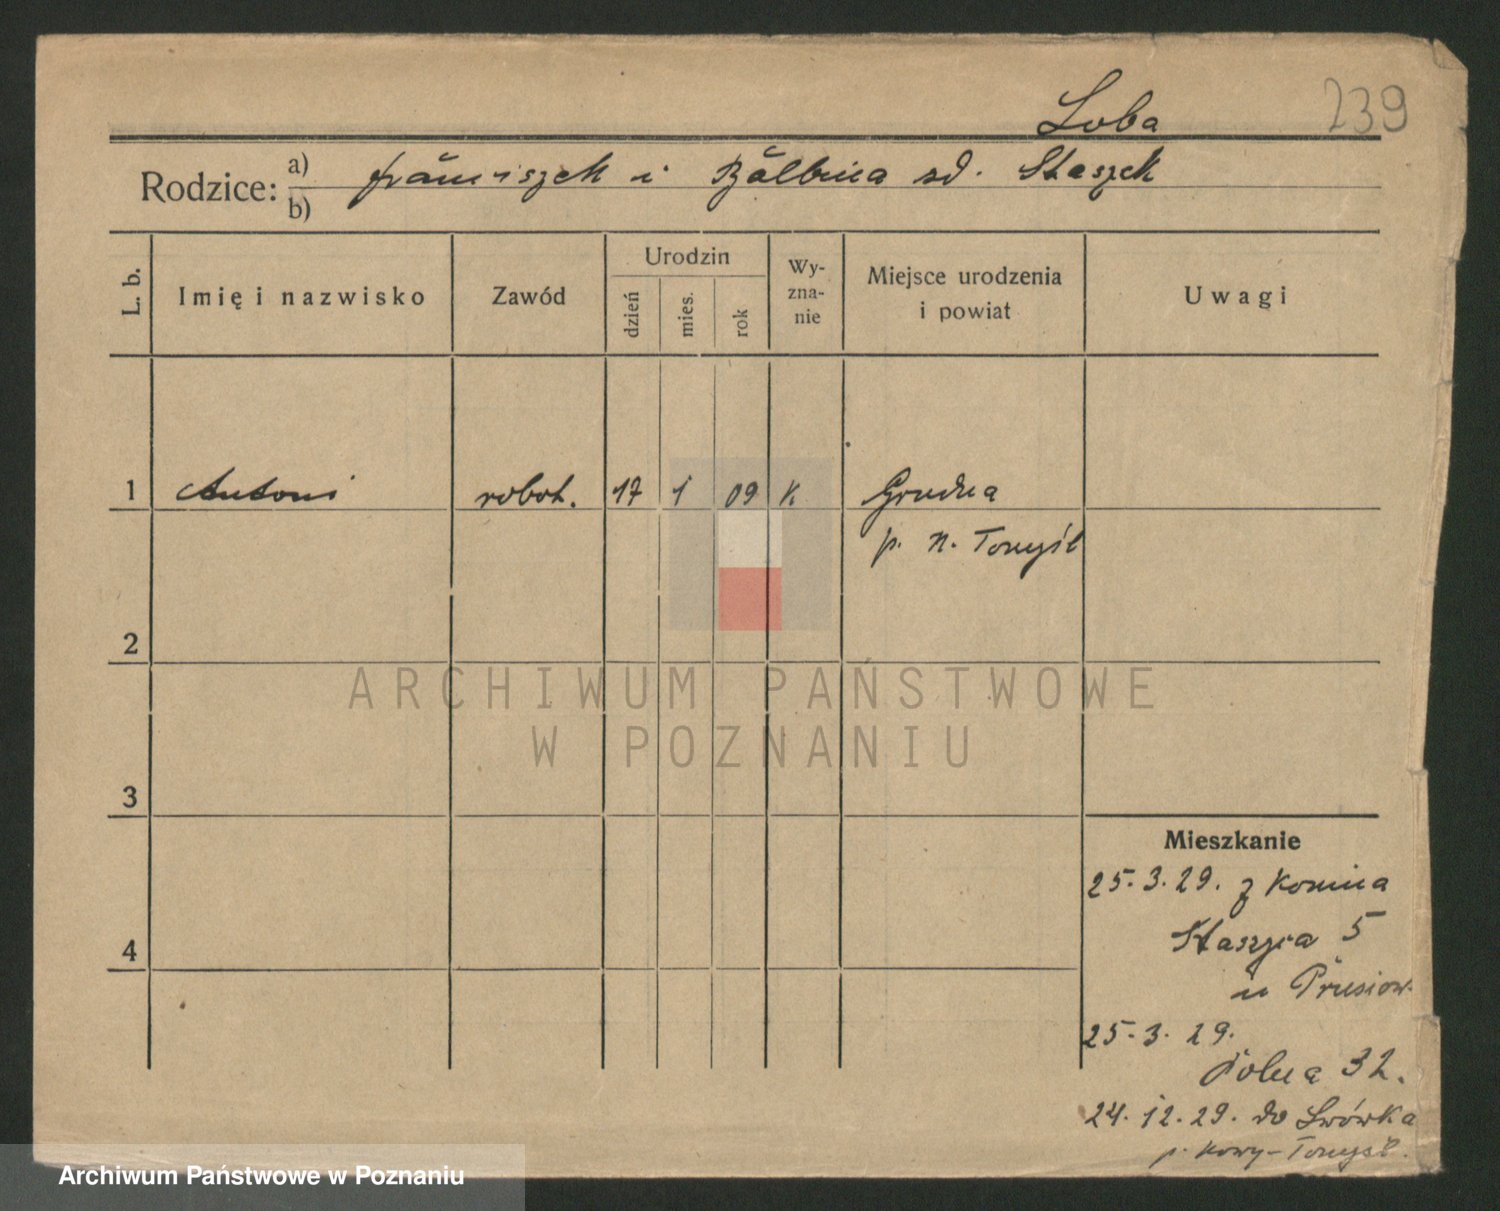 Loba 239
Rodzice: a) franciszek i Balbina zd. Staszek
b)
L. b. Imię i nazwisko Zawód Urodzin dzień mies. rok Wy-zna-nie Miejsce urodzenia i powiat Uwagi
1 Antoni robot. 17 1 09 K Grudna
p. n. Tomyśl
2
ARCHIWUM PAŃSTWOWE
W POZNANIU
3
Mieszkanie
25.3.29. z Konina
Staszyca 5
4
u Prusiow.
25.3.29.
Polna 32.
24.12.29. do Lwówka
p. Nowy-Tomyśl.
Archiwum Państwowe w Poznaniu